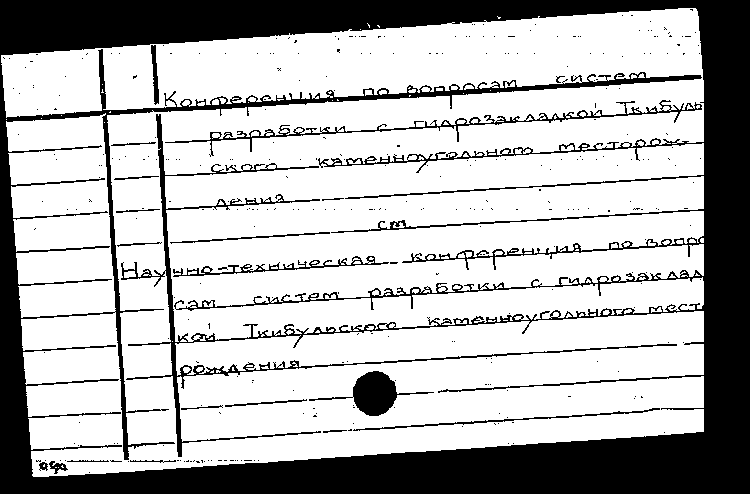 Конференция по вопросам систем
разработки с гидрозакладкой Ткибуль
ского каменноугольного месторож-
дения
см.
Научно-техническая конференция по вопро
сам систем разработки с гидрозаклад
кой Ткибульского каменноугольного место
рождения